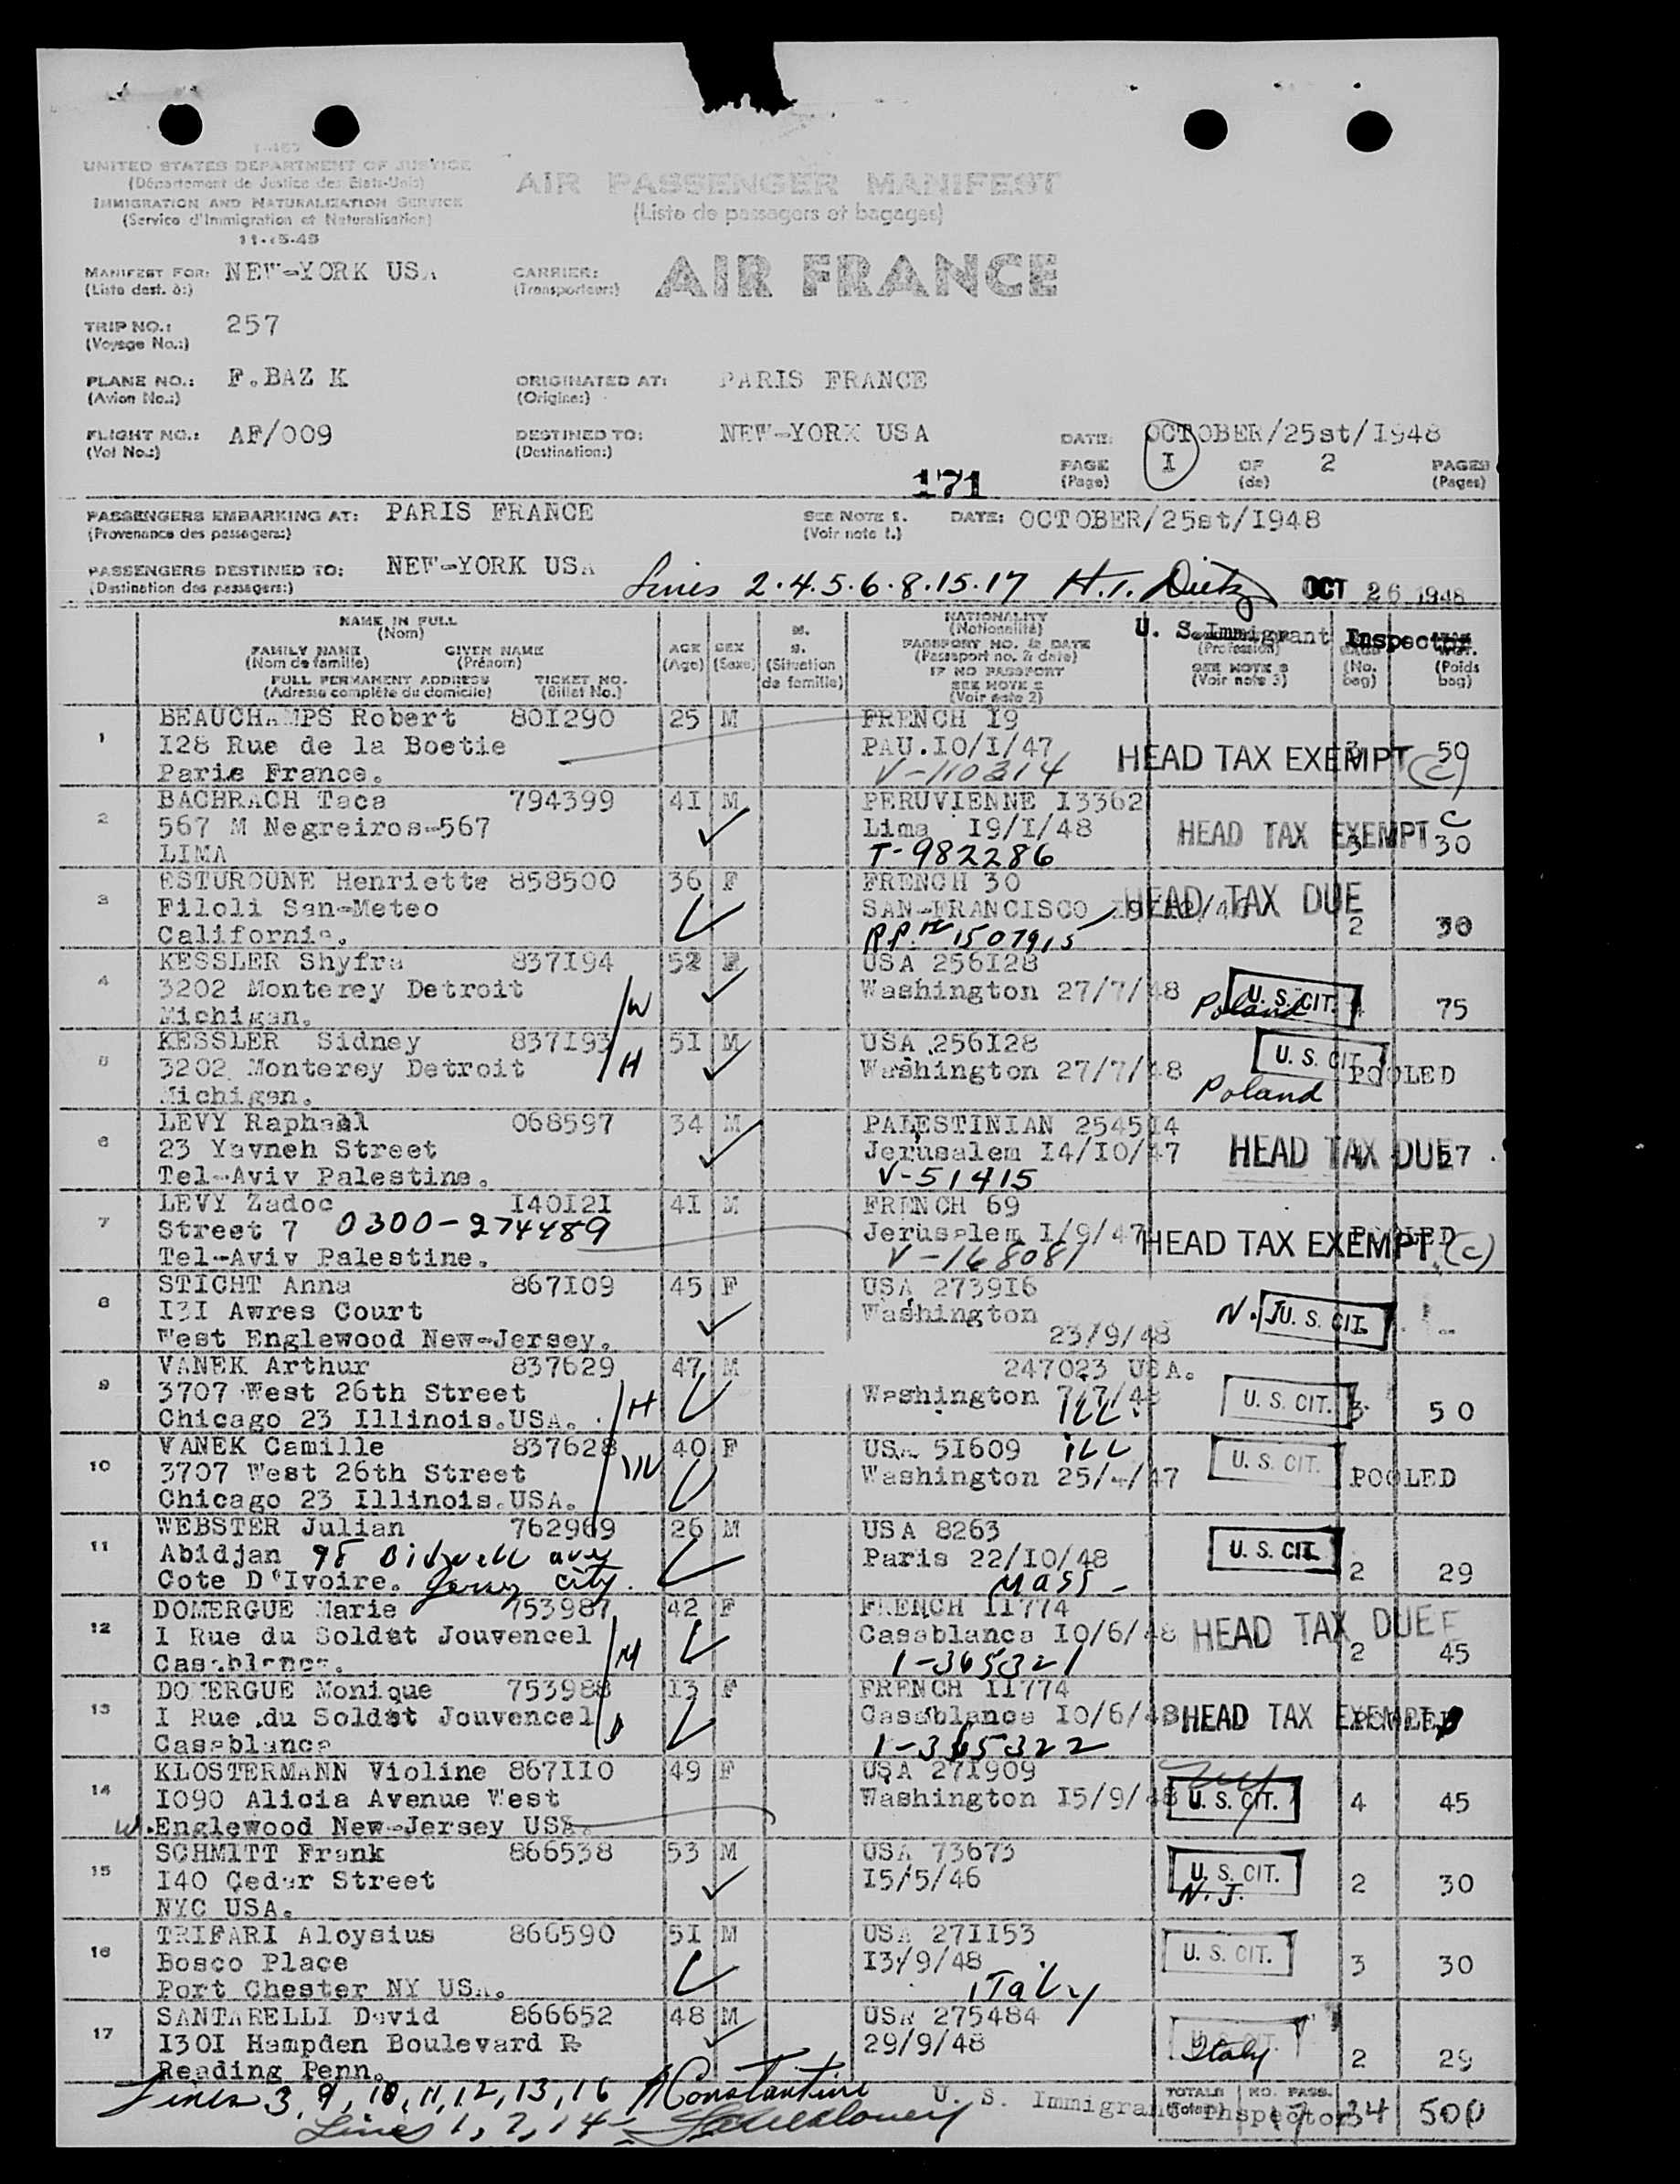 I-466
UNITED STATES DEPARTMENT OF JUSTICE
(Département de Justice des Etats-Unis)
IMMIGRATION AND NATURALIZATION SERVICE
(Service d'Immigration et Naturalisation)
11-15-45
AIR PASSENGER MANIFEST
(Liste de passagers et bagages)
MANIFEST FOR: NEW-YORK USA
(Liste dest. à:)
CARRIER: AIR FRANCE
(Transporteur:)
TRIP NO.: 257
(Voyage No.:)
PLANE NO.: F.BAZ K
(Avion No.:)
ORIGINATED AT: PARIS FRANCE
(Origine:)
FLIGHT NO.: AF/009
(Vol No.:)
DESTINED TO: NEW-YORK USA
(Destination:)
DATE: OCTOBER/25st/I948
PAGE I OF 2 PAGES
(Page) (de) (Pages)
171
PASSENGERS EMBARKING AT: PARIS FRANCE
(Provenance des passagers:)
SEE NOTE 1. DATE: OCTOBER/25st/I948
(Voir note 1.)
PASSENGERS DESTINED TO: NEW-YORK USA
(Destination des passagers:)
Lines 2.4.5.6.8.15.17 H.T. Dietz OCT 26 1948
U. S. Immigrant Inspector
NAME IN FULL
(Nom)
FAMILY NAME GIVEN NAME
(Nom de famille) (Prénom)
FULL PERMANENT ADDRESS TICKET NO.
(Adresse complète du domicile) (Billet No.)
AGE
(Age)
SEX
(Sexe)
M.
S.
(Situation
de famille)
NATIONALITY
(Nationalité)
PASSPORT NO. & DATE
(Passeport no. & date)
IF NO PASSPORT
SEE NOTE 2
(Voir note 2)
(Profession)
SEE NOTE 3
(Voir note 3)
(No.
bag)
(Poids
bag)
1 BEAUCHAMPS Robert 80I290 25 M FRENCH I9
I28 Rue de la Boetie PAU.IO/I/47 HEAD TAX EXEMPT (C) 3 50
Paris France. V-110314
2 BACHRACH Taca 794399 4I M PERUVIENNE I3362
567 M Negreiros-567 Lima I9/I/48 HEAD TAX EXEMPT C 3 30
LIMA T-982286
3 ESTUROUNE Henriette 858500 36 F FRENCH 30
Filoli San-Meteo SAN-FRANCISCO HEAD TAX DUE 2 30
California. R.P. 1507915
4 KESSLER Shyfra 837I94 52 F USA 256I28
3202 Monterey Detroit W Washington 27/7/48 Poland U. S. CIT. 75
Michigan.
5 KESSLER Sidney 837I93 5I M USA 256I28
3202 Monterey Detroit H Washington 27/7/48 U. S. CIT. POOLED
Michigan. Poland
6 LEVY Raphael 068597 34 M PALESTINIAN 2545I4
23 Yavneh Street Jerusalem I4/IO/47 HEAD TAX DUE
Tel-Aviv Palestine. V-51415
7 LEVY Zadoc I40I2I 4I M FRENCH 69
Street 7 0300-274489 Jerusalem I/9/47 HEAD TAX EXEMPT (C) POOLED
Tel-Aviv Palestine. V-168081
8 STICHT Anna 867I09 45 F USA 2739I6
I3I Awres Court Washington N.J. U. S. CIT.
West Englewood New-Jersey. 23/9/48
9 VANEK Arthur 837629 47 M 247023 USA.
3707 West 26th Street H Washington 7/7/48 U. S. CIT. 3 50
Chicago 23 Illinois.USA. ILL.
10 VANEK Camille 837628 40 F USA 5I609 ILL
3707 West 26th Street W Washington 25/4/47 U. S. CIT. POOLED
Chicago 23 Illinois.USA.
11 WEBSTER Julian 762969 26 M USA 8263
Abidjan 98 Bidwell ave Paris 22/IO/48 U. S. CIT. 2 29
Cote D'Ivoire. Jersey city. Mass-
12 DOMERGUE Marie 753987 42 F FRENCH II774
I Rue du Soldat Jouvencel M Casablanca IO/6/48 HEAD TAX DUE 2 45
Casablanca. 1-365321
13 DOMERGUE Monique 753988 I3 F FRENCH II774
I Rue du Soldat Jouvencel D Casablanca IO/6/48 HEAD TAX EXEMPT POOLED
Casablanca 1-365322
14 KLOSTERMANN Violine 867IIO 49 F USA 27I909
I090 Alicia Avenue West Washington I5/9/48 NY U. S. CIT. 4 45
W. Englewood New-Jersey USA.
15 SCHMITT Frank 866538 53 M USA 73673
I40 Cedar Street I5/5/46 U. S. CIT. N.J. 2 30
NYC USA.
16 TRIFARI Aloysius 866590 5I M USA 27II53
Bosco Place I3/9/48 U. S. CIT. 3 30
Port Chester NY USA. ITaly
17 SANTARELLI David 866652 48 M USA 275484
I30I Hampden Boulevard R 29/9/48 U. S. CIT. Italy 2 29
Reading Penn.
Lines 3, 9, 10, 11, 12, 13, 16 A Constantine
U. S. Immigrant Inspector
TOTALS NO. PASS. 17 34 500
Lines 1, 7, 14-